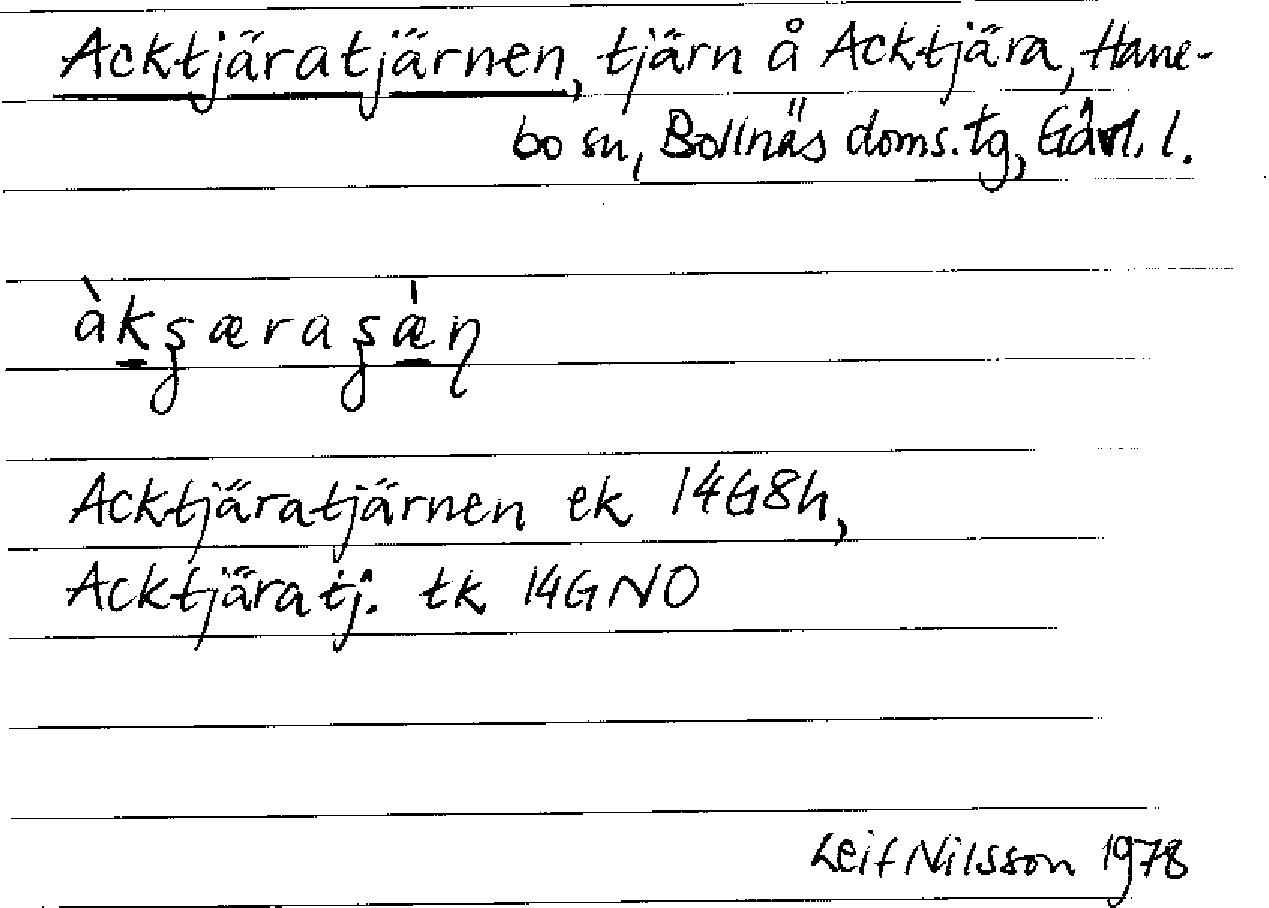 Acktjäratjärnen, tjärn å Acktjära, Hane-
bo sn, Bollnäs doms.tg, Gävl. l.
àk̲ʂæraʂæ̲̍ɳ
Acktjäratjärnen ek 14G8h,
Acktjäratj. tk 14GNO
Leif Nilsson 1978